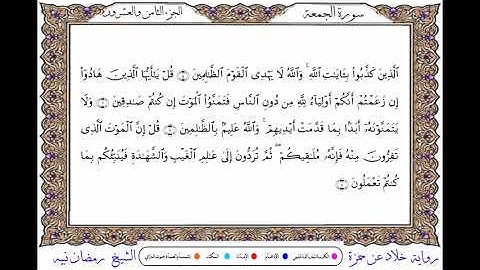 سورة الجمعة
الجزء الثامن والعشرون
ٱلَّذِينَ كَذَّبُوا۟ بِـَٔايَـٰتِ ٱللَّهِ ۚ وَٱللَّهُ لَا يَهْدِى ٱلْقَوْمَ ٱلظَّـٰلِمِينَ ۝ قُلْ يَـٰٓأَيُّهَا ٱلَّذِينَ هَادُوٓا۟
إِن زَعَمْتُمْ أَنَّكُمْ أَوْلِيَآءُ لِلَّهِ مِن دُونِ ٱلنَّاسِ فَتَمَنَّوُا۟ ٱلْمَوْتَ إِن كُنتُمْ صَـٰدِقِينَ ۝ وَلَا
يَتَمَنَّوْنَهُۥٓ أَبَدًۢا بِمَا قَدَّمَتْ أَيْدِيهِمْ ۚ وَٱللَّهُ عَلِيمٌۢ بِٱلظَّـٰلِمِينَ ۝ قُلْ إِنَّ ٱلْمَوْتَ ٱلَّذِى
تَفِرُّونَ مِنْهُ فَإِنَّهُۥ مُلَـٰقِيكُمْ ۖ ثُمَّ تُرَدُّونَ إِلَىٰ عَـٰلِمِ ٱلْغَيْبِ وَٱلشَّهَـٰدَةِ فَيُنَبِّئُكُم بِمَا
كُنتُمْ تَعْمَلُونَ ۝
رواية خلاد عن حمزة
الشيخ رمضان نبيه